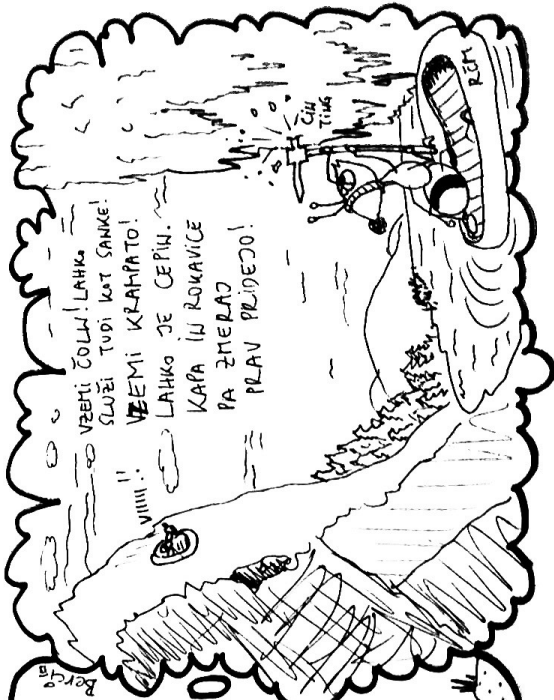 VZEMI ČOLN! LAHKO
SLUŽI TUDI KOT SANKE!
VZEMI KRAMPATO!
LAHKO JE CEPIN.
KAPA IN ROKAVICE
PA ZMERAJ
PRAV PRIDEJO!
VIIIII!!
ČIN
TING
RČM